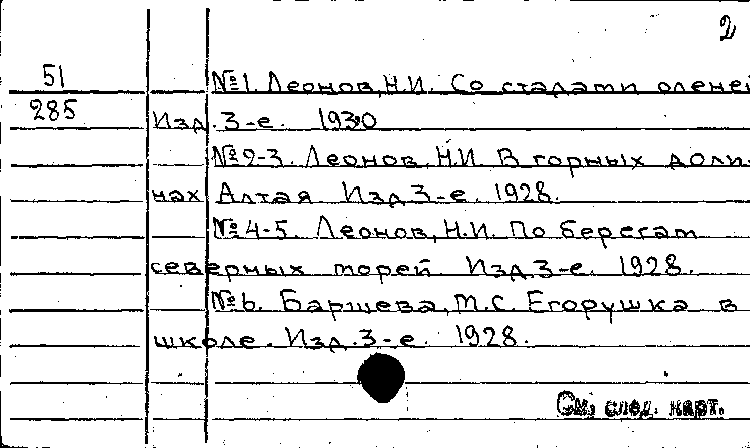 2
51
№1. Леонов, Н.И. Со стадами оленей
285
Изд. 3-е. 1930
№2-3. Леонов, Н.И. В горных доли-
нах Алтая. Изд. 3-е. 1928.
№4-5. Леонов, Н.И. По берегам
северных морей. Изд. 3-е. 1928.
№6. Баршева, М.С. Егорушка в
школе. Изд. 3-е. 1928.
См. след. карт.